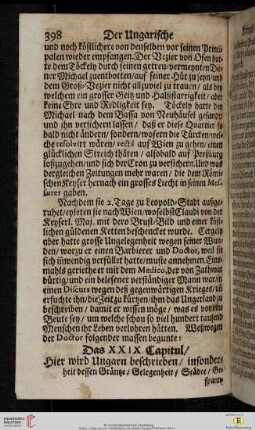 398 Der Ungarische
und noch köstlichere von denselben vor seinen Princi-
palen wieder empfangen. Der Vezier von Ofen hat-
te dem Töckely durch seinen getreu-vermeynten Die-
ner Michael zuentbotten/ auf seiner Hüt zu seyn/ und
dem Groß-Vezier nicht allzuviel zu trauen/ als bey
welchem ein grosser Geitz und Halsstarrigkeit/ aber
keine Ehre und Redligkeit sey. Töckely hatte den
Michael nach dem Bassa von Neuhäusel gesandt
und ihn versichern lassen/ daß er diese Quartier so
bald nicht ändern/ sondern/ wofern die Türcken wür-
cklich resolvirt wären/ rectâ auf Wien zu gehen/ einen
glücklichen Streich thäten/ alsobald auf Preßburg
loßzugehen/ und sich der Cron zu versichern. Und was
dergleichen Zeitungen mehr waren/ die dem Römi-
schen Keyser hernach ein grosses Liecht in seinen Me-
sures gaben.
Nachdem sie 2. Tage zu Leopold-Stadt außge-
ruhet/ eyleten sie nach Wien/ woselbst Claudi von der
Keyserl. Maj. mit dero Brust-Bild und einer köst-
lichen güldenen Ketten beschencket wurde. Cergely
aber hatte grosse Ungelegenheit wegen seiner Wun-
den/ worzu er einen Barbierer und Doctor, weil sie
sich inwendig verfüllet hatte/ muste annehmen. Eins-
mahls geriethe er mit dem Medico, der von Zathmar
bürtig/ und ein belesener verständiger Mann war/ in
einen Discurs wegen deß gegenwärtigen Krieges/ und
ersuchte ihn/ die Zeit zu kürtzen/ ihm das Ungerland zu
beschreiben/ damit er wissen möge/ was es vor eine
Beute sey/ um welche schon so viel hundert tausend
Menschen ihr Leben verlohren hätten. Weßwegen
der Doctor folgender massen begunte:
Das XXIX Capitul/
Hier wird Ungarn beschrieben/ insonder-
heit dessen Gräntze/ Gelegenheit/ Städte/ Ge-